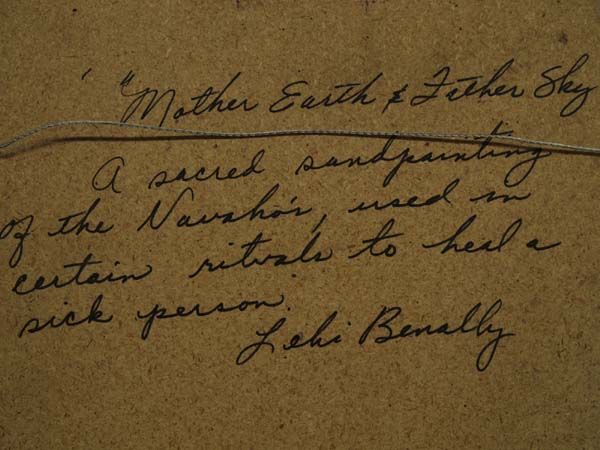 "Mother Earth & Father Sky
A sacred sandpainting
of the Navaho's, used in
certain rituals to heal a
sick person.
Lehi Benally